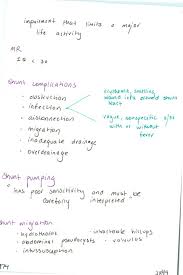 impairment that limits a major
life activity
MR
IQ < 70
Shunt complications
• obstruction
• infection
• disconnection
• migration
• inadequate drainage
• overdrainage
erythema, swelling
wound info around shunt
tract
vague, nonspecific s/sx
with or without
fever
Shunt pumping
• has poor sensitivity and must be
carefully interpreted
Shunt migration
• hydrothorax
• intractable hiccups
• abdominal pseudocysts
• volvulus
• intussusception